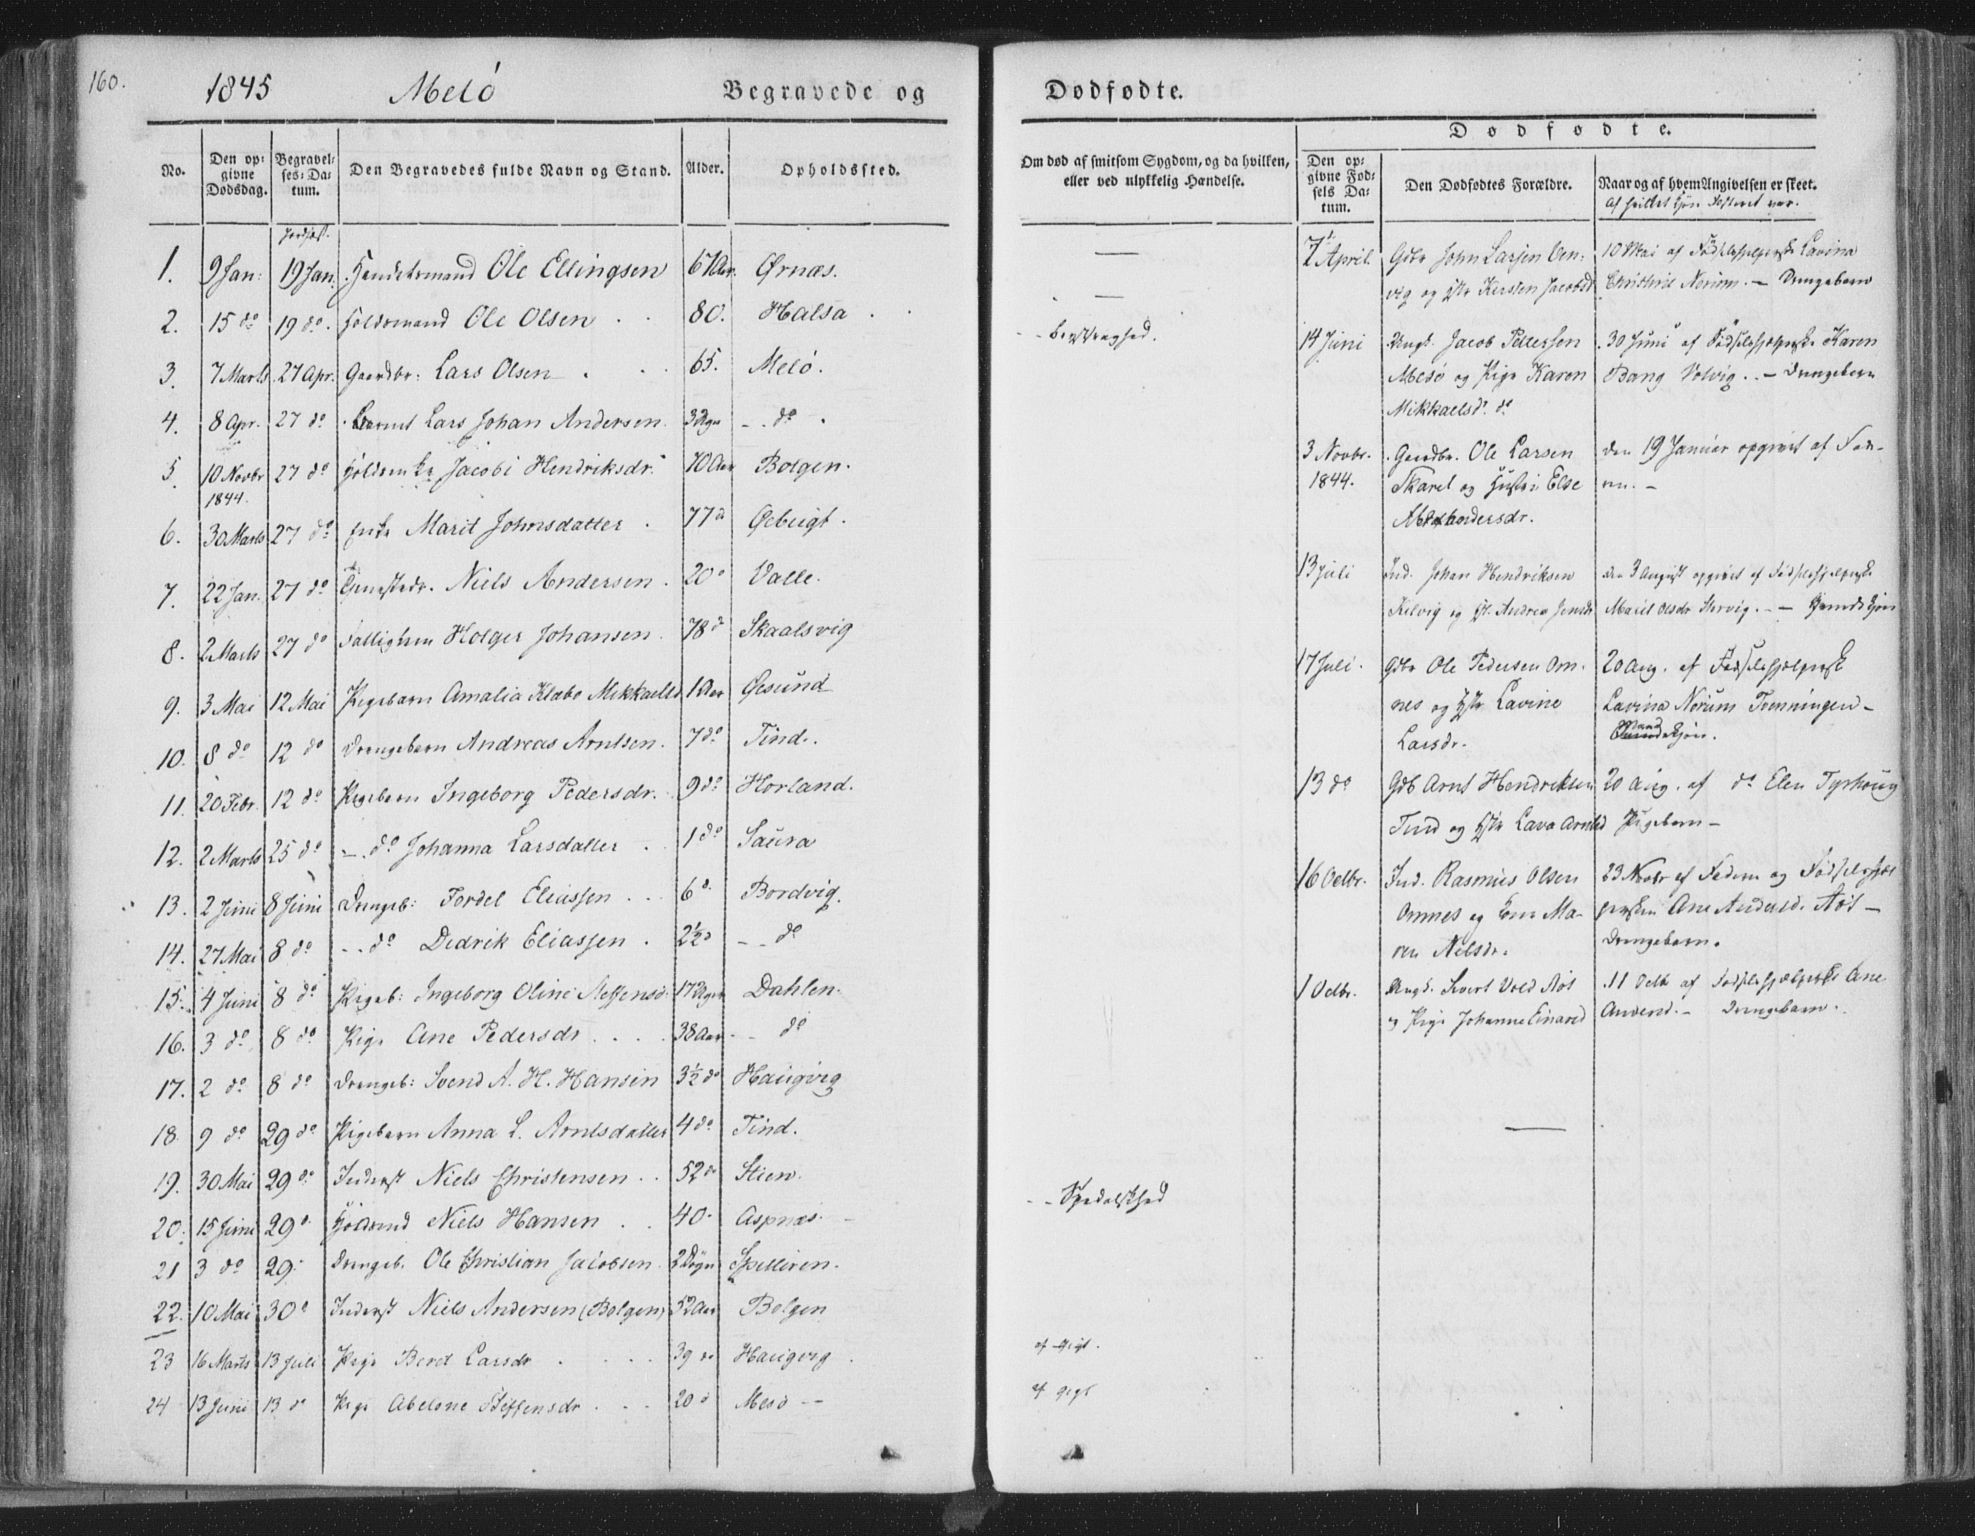 160.
1845 Melö Begravede og
No. Den opgivne Dødsdag. Begravelses-Datum. Den Begravedes fulde Navn og Stand. Alder. Opholdssted.
Jordfæst.
1. 9 Jan: 19 Jan. Handelsmand Ole Ellingsen 67 Aar. Ørnæs.
2. 15 do 19 do. Ole Olsen 80. Halsa
3. 7 Marts 27 Apr. Gaardbr: Lars Olsen 65. Melö.
4. 8 Apr. 27 do Barnet Lars Johan Andersen 3 do
5. 10 Novbr 1844. 27 do Jacobi Hendriksdr. 70 Aar Bolgen.
6. 30 Marts 27 do Enke Marit Johnsdatter 77 do
7. 22 Jan. 27 do Tjenestedr. Niels Andersen. 20 do Valle.
8. 2 Marts 27 do Holger Johansen. 78 do Skaalsvig
9. 3 Mai 12 Mai Pigebarn Amalia Klabo Mikkaelsd. 1 Aar Øesund
10. 8 do 12 do Drengebarn Andreas Arntsen. 7 do Tind.
11. 20 Febr. 12 do Pigebarn Ingeborg Pedersdr. 9 do Horland.
12. 2 Marts 25 do do Johanna Larsdatter 1 do Saura
13. 2 Juni 8 Juni Drengeb: Fordel Eliassen 6 do Bordvig.
14. 27 Mai 8 do do Didrik Eliassen 2½ do do
15. 4 Juni 8 do Pigeb: Ingeborg Oline Steffensd. 17 Dahlen.
16. 3 do 8 do Pige Ane Pedersdr 38 Aar do
17. 2 do 8 do Drengeb: Svend A. H. Hansen 3½ do Haugvig
18. 9 do 29 do Pigebarn Anna L. Arntsdatter 4 do Tind.
19. 30 Mai 29 do Inderst Niels Christensen 52 do Stien.
20. 15 Juni 29 do Niels Hansen 40. Aspnæs.
21 3 do 29 Drengeb. Ole Christian Jacobsen 2 Døgn
22. 10 Mai 30 do Inderst Niels Andersen (Bolgen) 52 Aar Bolgen
23 16 Marts 13 Juli Pige Berit Larsdr 39 do Haugvig
24 13 Juni 13 do Pige Abelone Steffensdr 20 do Mesö
Dødfødte.
Om død af smitsom Sygdom, og da hvilken, eller ved ulykkelig Hændelse.
Spedalskhed
af gigt.
af gigt
Dødfødte.
Den opgivne Fødsels Datum. Den Dødfødtes Forældre. Naar og af hvem Angivelsen er skeet.
Af hvilket Kjøn Fosteret var.
7 April. Gdbr John Larsen 10 Mai af Fødselshjelpersk Lavina
og Hstr Kirsten Jacobsd Christine Norum. — Drengebarn
14 Juni Ungk. Jacob Pettersen 30 Juni af Fødselshjelperske Karen
Mesö og Pige Karen Bang Volvig. — Drengebarn
Mikkaelsd. do
3 Novbr. 1844. Gaardbr. Ole Larsen den 19 Januar opgivet af Fade-
og Hustru Else ren. —
Alexandersdr.
13 Juli Ind. Johan Hendriksen den 3 August opgivet af Fødselshjelperske
Kilvig og H. Andrea Jensdr Marit Olsdr
17 Juli. Gdbr Ole Pedersen Om- 20 Aug. af Fødselshjelpersk
nes og Hstr Lavine Lavina Norum Tenningen —
Larsdr. Mandkjøn.
13 do Gdb Arnt Hendriksen 20 Aug. af do Elen Tyrhoug
Tind og Hstr Lava Arntsd Pigebarn —
16 Octbr. Ind. Rasmus Olsen 23 Novbr af Faderen og Fødselshjel
Omnes og Kone Ma- persken Ane Andersd. Aos —
ren Nilsdr. Drengebarn.
1 Octbr. Ungk. Sivert Vold Aos 11 Octb af Fødselshjelperske Ane
og Pige Johanne Einarsd Andersd. — Drengebarn.